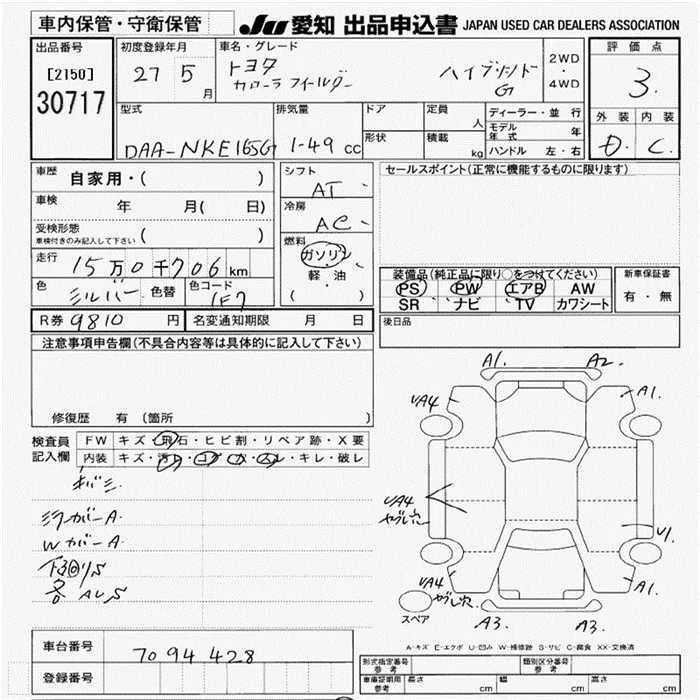 車内保管・守衛保管
JU 愛知 出品申込書 JAPAN USED CAR DEALERS ASSOCIATION
出品番号
[2150]
30717
初度登録年月
27 5 月
車名・グレード
トヨタ
カローラフィールダー
ハイブリッド
G
2WD
・
4WD
評価点
3.
外装 内装
D. C.
型式
DAA-NKE165G
排気量
1-49 cc
ドア
形状
定員
人
積載
kg
ディーラー・並行
モデル年式 年
ハンドル 左・右
車歴
自家用・( )
車検
年 月( 日)
受検形態
車検付きのみ記入して下さい ( )
走行
15万0千706km
色
シルバー
色替
色コード
1F7
シフト
AT
冷房
AC
燃料
ガソリン
軽・油
( )
セールスポイント(正常に機能するものに限ります)
装備品(純正品に限り○をつけてください)
PS PW エアB AW
SR ナビ TV カワシート
新車保証書
有・無
R券 9810 円
名変通知期限 月 日
後日品
注意事項申告欄(不具合内容等は具体的に記入して下さい)
修復歴 有 (箇所 )
検査員
記入欄
FW キズ・飛石・ヒビ割・リペア跡・X要
内装 キズ・汚れ・コゲ・穴・スレ・キレ・破レ
キバミ
ミラーカバーA
WカバーA
下回りS
各ALS
A1. A2.
UA4 A1.
UA4
ヤブレ穴
U1.
UA4
ヤブレ穴
A1.
スペア
A3. A3.
A-キズ E-エクボ U-凹み W-補修跡 S-サビ C-腐食 XX-交換済
車台番号
7094428
登録番号
形式指定番号
参考
類別区分番号
参考
車庫証明用
参考
長さ cm 幅 cm 高さ cm